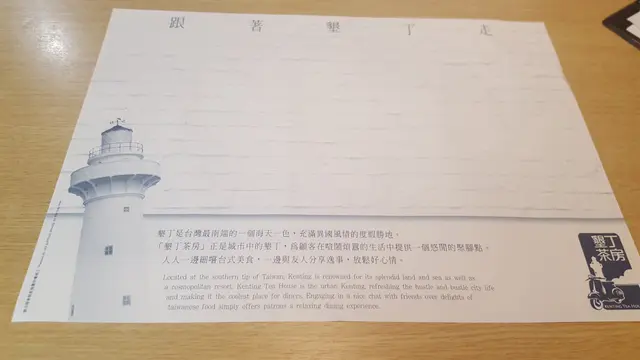 跟著墾丁走
墾丁是台灣最南端的一個海天一色，充滿異國風情的度假勝地。
「墾丁茶房」正是城市中的墾丁，為顧客在暗鬧煩囂的生活中提供一個悠閒的聚腳點。
人人一邊細嚐台式美食，一邊與友人分享逸事，放鬆好心情。
Located at the southern tip of Taiwan, Kenting is renowned for its splendid land and sea as well as
a cosmopolitan resort. Kenting Tea House is the urban Kenting, refreshing the hustle and bustle city life
and making it the coolest place for diners. Engaging in a nice chat with friends over delights of
taiwanese food simply offers patrons a relaxing dining experience.
墾丁
茶房
KENTING TEA HOUSE